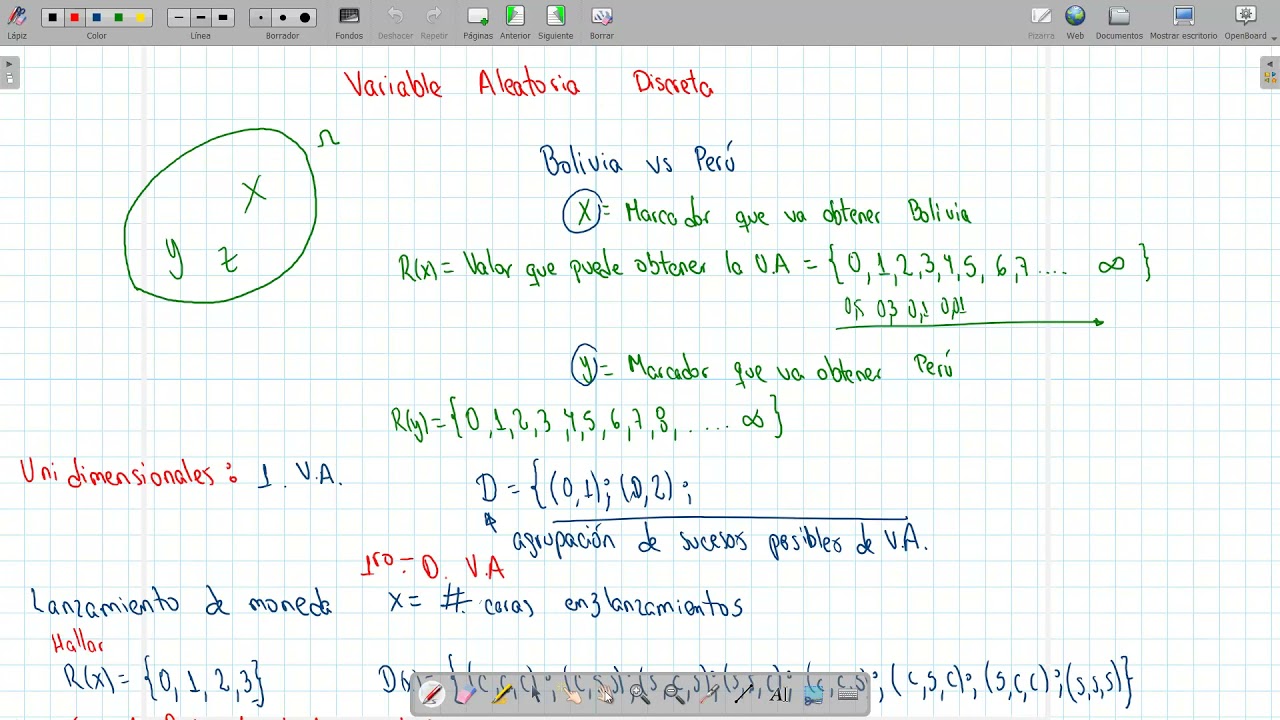 Lápiz Color Línea Borrador Fondos Deshacer Repetir Páginas Anterior Siguiente Borrar Pizarra Web Documentos Mostrar escritorio OpenBoard
Variable Aleatoria Discreta
Ω
X
y z
Bolivia vs Perú
X = Marcador que va obtener Bolivia
R(x) = Valor que puede obtener la V.A = {0, 1, 2, 3, 4, 5, 6, 7 .... ∞ }
0,5 0,3 0,1 0,01
y = Marcador que va obtener Perú
R(y) = {0, 1, 2, 3, 4, 5, 6, 7, 8, ..... ∞ }
Uni dimensionales : 1. V.A.
D = {(0,1); (0,2) ;
agrupación de sucesos posibles de V.A.
1ro - D. V.A
Lanzamiento de moneda x = # caras en 3 lanzamientos
Hallar
R(x) = {0, 1, 2, 3}
D(x) = {(c,c,c); (c,s,s); (s,c,s); (s,s,c); (c,c,s); (c,s,c); (s,c,c); (s,s,s)}